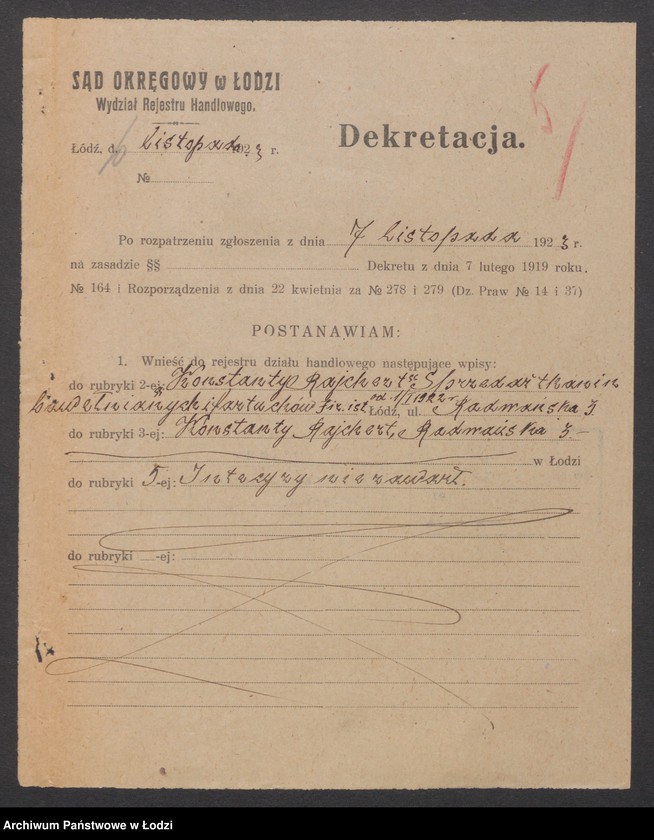 SĄD OKRĘGOWY w ŁODZI
Wydział Rejestru Handlowego.
Łódź, d. Listopada 1923 r.
Dekretacja.
№
Po rozpatrzeniu zgłoszenia z dnia 7 Listopada 1923 r.
na zasadzie §§ Dekretu z dnia 7 lutego 1919 roku.
№ 164 i Rozporządzenia z dnia 22 kwietnia za № 278 i 279 (Dz. Praw № 14 i 37)
POSTANAWIAM:
1. Wnieść do rejestru działu handlowego następujące wpisy:
do rubryki 2-ej: Konstanty Rajchert Sprzedaż tkanin
bawełnianych i fartuchów fir. ist. od 1/I 1922 r Łódź, ul. Radwańska 3
do rubryki 3-ej: Konstanty Rajchert, Radwańska 3 –
w Łodzi
do rubryki 5-ej: Intercyzy nie zawarł.
do rubryki -ej:
Archiwum Państwowe w Łodzi